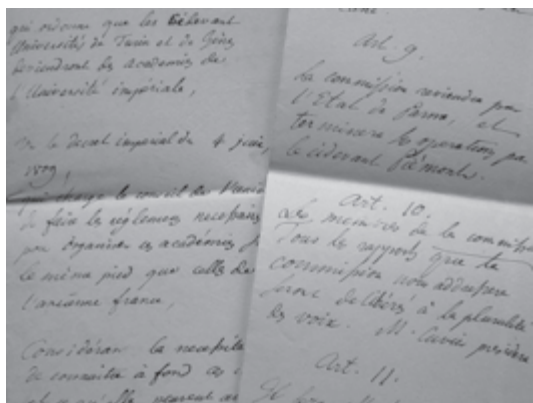 qui ordonne que les cidevant
Universités de Turin et de Gênes
deviendront les académies de
l'Université impériale,
Vu le decret impérial du 4 juin,
1809,
qui charge le conseil de l'
de faire les réglemens necessaires
pour organiser ces académies
le même pied que celles de
l'ancienne france,
Considérant la necessité
de connaître à fond
Art. 9.
La commission reviendra par
l'Etat de Parme, et
terminera les operations par
le cidevant Piémont.
Art. 10.
membres de la commission
Tous les rapports que la
commission nous addressera
seront delibérés à la pluralité
des voix. M. Cuvier présidera
Art. 11.